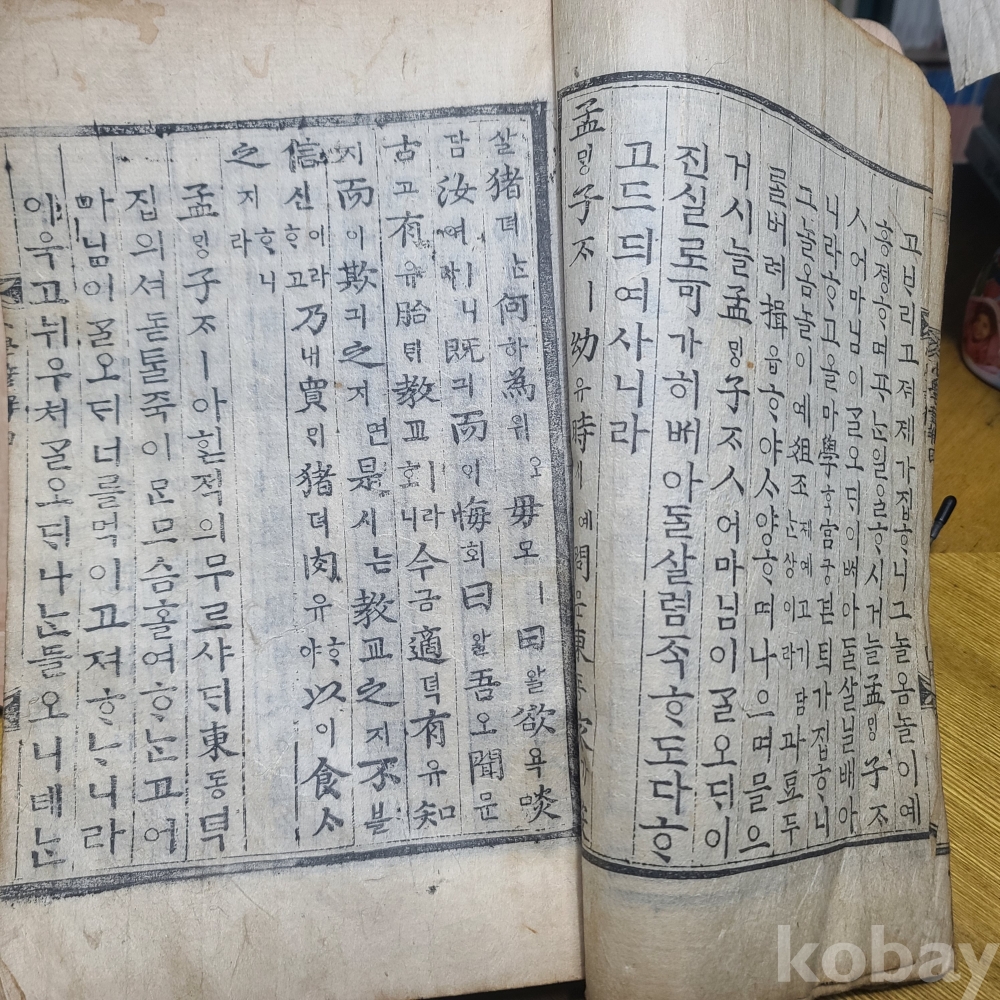 고ᄇᆞ리고져제가집ᄒᆞ니그놀옴놀이예
흥졍ᄒᆞ며ᄑᆞᄂᆞᆫ일을ᄒᆞ시거늘孟ᄆᆡᆼ子ᄌᆞ
ㅅ어마님이ᄀᆞᆯ오ᄃᆡ이ᄡᅥ아ᄃᆞᆯ살닐배아
니라ᄒᆞ고올마學ᄒᆞᆨ宮궁겯ᄐᆡ가집ᄒᆞ니
그놀옴놀이예俎조제예고기담ᄂᆞᆫ상이라과豆두
ᄅᆞᆯ버려揖읍ᄒᆞ야ᄉᆞ양ᄒᆞ며나으며믈으
거시늘孟ᄆᆡᆼ子ᄌᆞㅅ어마님이ᄀᆞᆯ오ᄃᆡ이
진실로可가히ᄡᅥ아ᄃᆞᆯ살렴즉ᄒᆞ도다ᄒᆞ
고드듸여사니라
孟ᄆᆡᆼ子ᄌᆞㅣ幼유時시예問문東동家
살猪뎌ᄂᆞᆫ何하爲위오毋모ㅣ曰왈欲욕啖
담汝여ㅣ니라既긔而이悔회曰왈吾오聞문
古고有유胎ᄐᆡ教교ㅣ라호니今금適뎍有유知
지而이欺긔之지면是시ᄂᆞᆫ教교之지不블
信신이라ᄒᆞ고乃내買ᄆᆡ猪뎌肉육ᄒᆞ야以이食ᄉᆞ
之지ᄒᆞ니라
孟ᄆᆡᆼ子ᄌᆞㅣ아ᄒᆡᆺ적의무르샤ᄃᆡ東동녁
집의셔돋톨죽이ᄆᆞᆫ므슴홀여ᄒᆞᄂᆞᆫ고어
마님이ᄀᆞᆯ오ᄃᆡ너를먹이고져ᄒᆞᄂᆞ니라
이윽고뉘우처ᄀᆞᆯ오ᄃᆡ나ᄂᆞᆫ들오니녜ᄂᆞᆫ
kobay